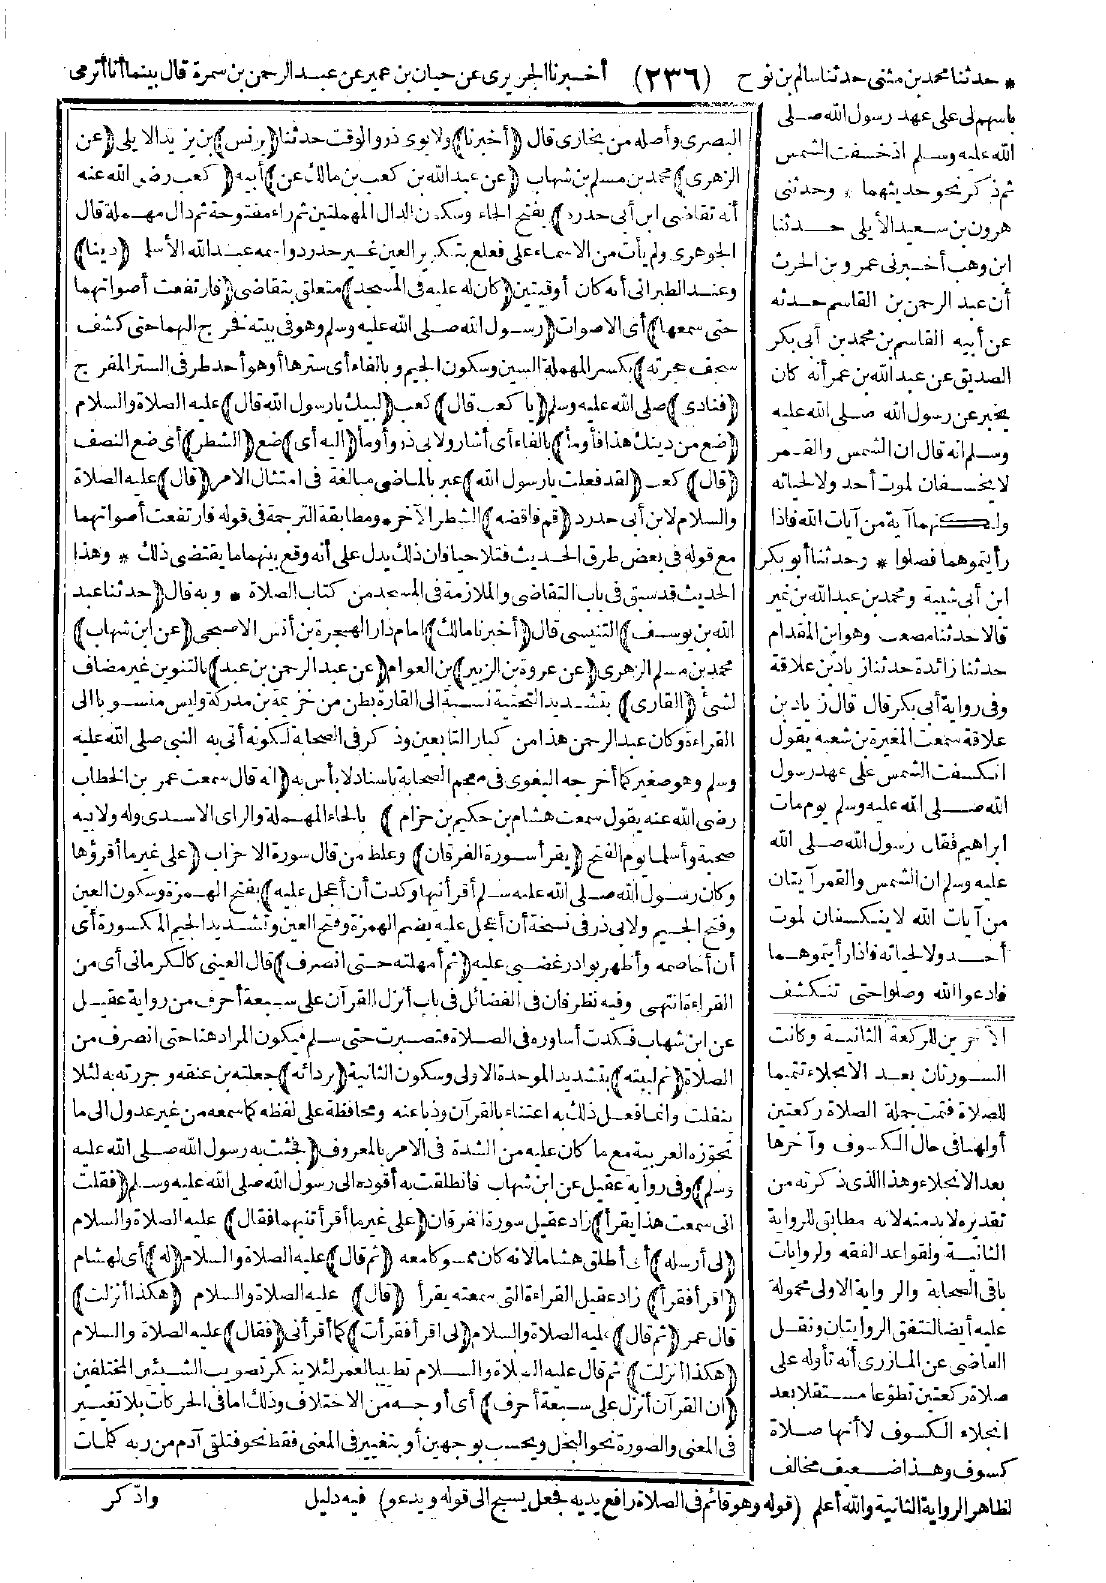 * حدثنا محمد بن مثنى حدثنا سالم بن نوح (٢٣٦) أخبرنا الجريرى عن حيان بن عمير عن عبد الرحمن بن سمرة قال بينما أنا أترمى
بأسهم لى على عهد رسول الله صلى
الله عليه وسلم اذ خسفت الشمس
ثم ذكر نحو حديثهما * وحدثنى
هرون بن سعيد الأيلى حدثنا
ابن وهب أخبرنى عمرو بن الحرث
أن عبد الرحمن بن القاسم حدثه
عن أبيه القاسم بن محمد بن أبى بكر
الصديق عن عبد الله بن عمر أنه كان
يخبر عن رسول الله صلى الله عليه
وسلم انه قال ان الشمس والقمر
لا يخسفان لموت أحد ولا لحياته
ولكنهما آية من آيات الله فاذا
رأيتموهما فصلوا * وحدثنا أبو بكر
ابن أبى شيبة ومحمد بن عبد الله بن نمير
قالا حدثنا مصعب وهو ابن المقدام
حدثنا زائدة حدثنا زياد بن علاقة
وفى رواية أبى بكر قال قال زياد بن
علاقة سمعت المغيرة بن شعبة يقول
انكسفت الشمس على عهد رسول
الله صلى الله عليه وسلم يوم مات
ابراهيم فقال رسول الله صلى الله
عليه وسلم ان الشمس والقمر آيتان
من آيات الله لا ينكسفان لموت
أحد ولا لحياته فاذا رأيتموهما
فادعوا الله وصلوا حتى تنكشف
الاخريين للركعة الثانية وكانت
السورتان بعد الانجلاء تتميما
للصلاة فتمت جملة الصلاة ركعتين
أولهما فى حال الكسوف وآخرها
بعد الانجلاء وهذا الذى ذكرته من
تقديره لا بد منه لانه مطابق للرواية
الثانية ولقواعد الفقه ولروايات
باقى الصحابة والرواية الاولى محمولة
عليه أيضا لتتفق الروايتان ونقل
القاضى عن المازرى أنه تأوله على
صلاة ركعتين تطوعا مستقلا بعد
انجلاء الكسوف لا أنها صلاة
كسوف وهذا ضعيف مخالف
لظاهر الرواية الثانية والله أعلم (قوله وهو قائم فى الصلاة رافع يديه فجعل يسبح الى قوله ويدعو) فيه دليل
البصرى وأصله من بخارى قال (أخبرنا) ولابوى ذر والوقت حدثنا (يونس) بن يزيد الايلى (عن
الزهرى) محمد بن مسلم بن شهاب (عن عبد الله بن كعب بن مالك عن) أبيه (كعب رضى الله عنه
أنه تقاضى ابن أبى حدرد) بفتح الحاء وسكون الدال المهملتين ثم راء مفتوحة ثم دال مهملة قال
الجوهرى ولم يأت من الاسماء على فعلع بتكرير العين غير حدرد واسمه عبد الله الأسلمى (دينا)
وعند الطبرانى أنه كان أوقيتين (كان له عليه فى المسجد) متعلق بتقاضى (فارتفعت أصواتهما
حتى سمعها) أى الاصوات (رسول الله صلى الله عليه وسلم وهو فى بيته فخرج اليهما حتى كشف
سجف حجرته) بكسر المهملة السين وسكون الجيم وبالفاء أى سترها أو هو أحد طرفى الستر المفرج
(فنادى) صلى الله عليه وسلم (يا كعب قال) كعب (لبيك يا رسول الله قال) عليه الصلاة والسلام
(ضع من دينك هذا فأومأ) بالفاء أى أشار ولابى ذر وأومأ (اليه أى) ضع (الشطر) أى ضع النصف
(قال) كعب (لقد فعلت يا رسول الله) عبر بالماضى مبالغة فى امتثال الامر (قال) عليه الصلاة
والسلام لابن أبى حدرد (قم فاقضه) الشطر الآخر * ومطابقة الترجمة فى قوله فارتفعت أصواتهما
مع قوله فى بعض طرق الحديث فتلاحيا فان ذلك يدل على أنه وقع بينهما ما يقتضى ذلك * وهذا
الحديث قد سبق فى باب التقاضى والملازمة فى المسجد من كتاب الصلاة * وبه قال (حدثنا عبد
الله بن يوسف) التنيسى قال (أخبرنا مالك) امام دار الهجرة بن أنس الاصبحى (عن ابن شهاب)
محمد بن مسلم الزهرى (عن عروة بن الزبير) بن العوام (عن عبد الرحمن بن عبد) بالتنوين غير مضاف
لشئ (القارى) بتشديد التحتية نسبة الى القارة بطن من خزيمة بن مدركة وليس منسوبا الى
القراءة وكان عبد الرحمن هذا من كبار التابعين وذكر فى الصحابة لكونه أتى به النبى صلى الله عليه
وسلم وهو صغير كما أخرجه البغوى فى معجم الصحابة باسناد لا بأس به (انه قال سمعت عمر بن الخطاب
رضى الله عنه يقول سمعت هشام بن حكيم بن حزام) بالحاء المهملة والزاى الاسدى وله ولابيه
صحبة وأسلما يوم الفتح (يقرأ سورة الفرقان) وغلط من قال سورة الاحزاب (على غير ما أقرؤها
وكان رسول الله صلى الله عليه وسلم أقرأنيها وكدت أن أعجل عليه) بفتح الهمزة وسكون العين
وفتح الجيم ولابى ذر فى نسخة أن أعجل عليه بضم الهمزة وفتح العين وتشديد الجيم المكسورة أى
أن أخاصمه وأظهر بوادر غضبى عليه (ثم أمهلته حتى انصرف) قال العينى كالكرمانى أى من
القراءة انتهى وفيه نظر فان فى الفضائل فى باب أنزل القرآن على سبعة أحرف من رواية عقيل
عن ابن شهاب فكدت أساوره فى الصلاة فتصبرت حتى سلم فيكون المراد هنا حتى انصرف من
الصلاة (ثم لببته) بتشديد الموحدة الاولى وسكون الثانية (بردائه) جعلته بن عنقه وجررته به لئلا
ينفلت وانما فعل ذلك به اعتناء بالقرآن وذبا عنه ومحافظة على لفظه كما سمعه من غير عدول الى ما
تجوزه العربية مع ما كان عليه من الشدة فى الامر بالمعروف (فجئت به رسول الله صلى الله عليه
وسلم) وفى رواية عقيل عن ابن شهاب فانطلقت به أقوده الى رسول الله صلى الله عليه وسلم (فقلت
انى سمعت هذا يقرأ) زاد عقيل سورة الفرقان (على غير ما أقرأتنيها فقال) عليه الصلاة والسلام
(لى أرسله) أى أطلق هشاما لانه كان ممسوكا معه (ثم قال) عليه الصلاة والسلام (له) أى لهشام
(اقرأ فقرأ) زاد عقيل القراءة التى سمعته يقرأ (قال) عليه الصلاة والسلام (هكذا أنزلت)
قال عمر (ثم قال) عليه الصلاة والسلام (لى اقرأ فقرأت) كما أقرأنى (فقال) عليه الصلاة والسلام
(هكذا أنزلت) ثم قال عليه الصلاة والسلام تطييبا لعمر لئلا ينكر تصويب الشيئين المختلفين
(ان القرآن أنزل على سبعة أحرف) أى أوجه من الاختلاف وذلك اما فى الحركات بلا تغيير
فى المعنى والصورة نحو البخل ويحسب بوجهين أو بتغيير فى المعنى فقط نحو فتلقى آدم من ربه كلمات
وادكر